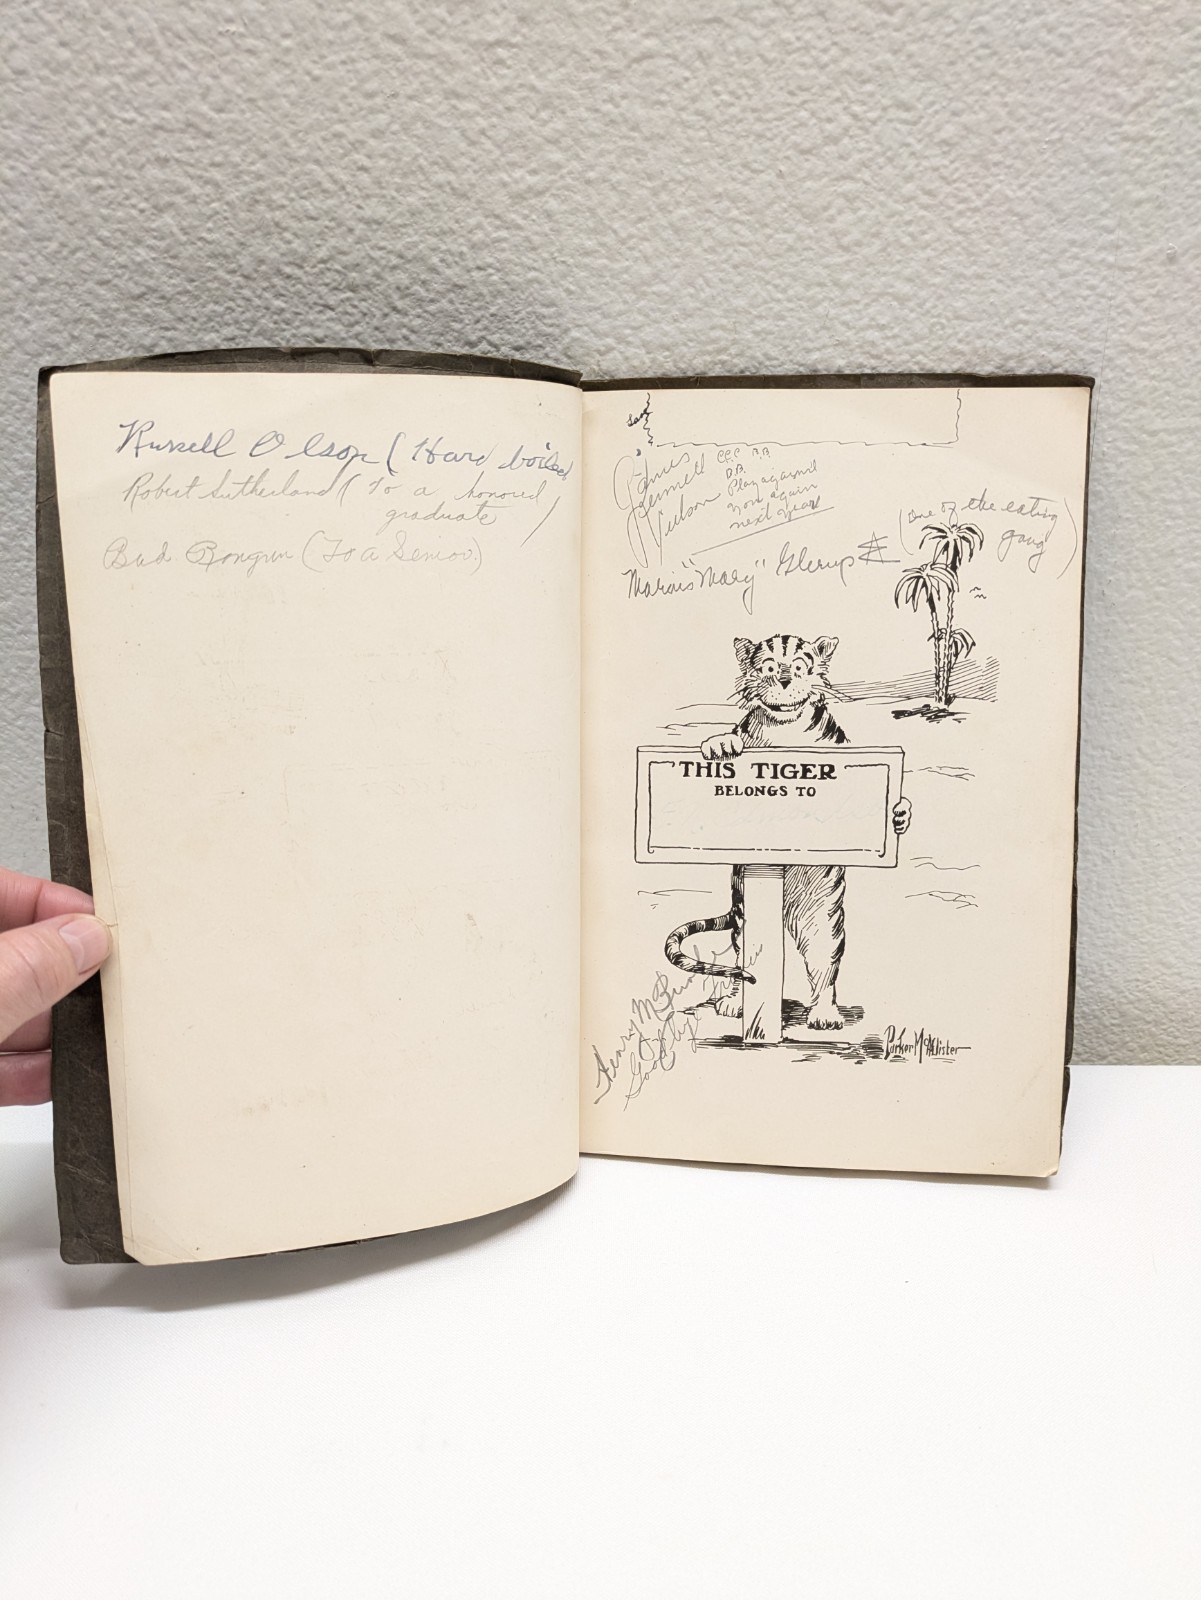 Russell Olson (Hard boiled
Robert Sutherland (To a honored
graduate)
Bud (To a Senior.)
Sam
James
Kennett
C.C.C. B.B.
B.B.
Play against
you again
next year
Marius "Mary" Glerup
(One of the eating
gang)
THIS TIGER
BELONGS TO
Henry
Good bye
Parker McAllister